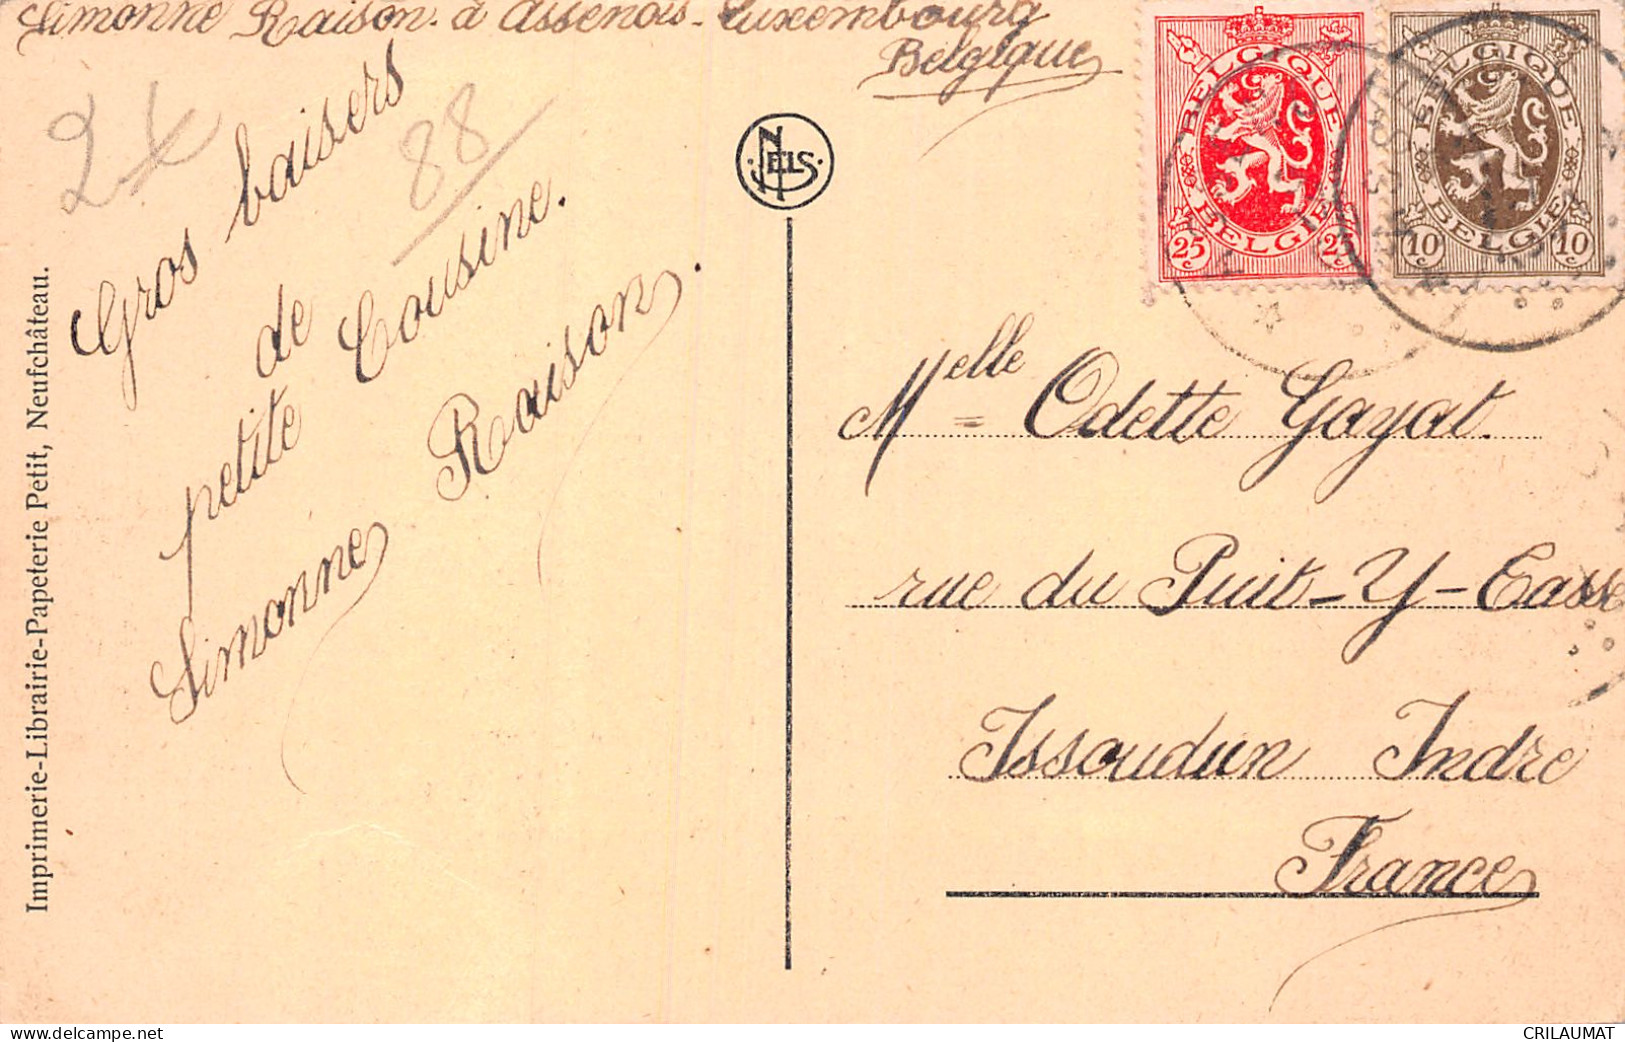 Simonne Raison. à Assenois - Luxembourg
Belgique
2
88
Gros baisers
de
petite Cousine.
Simonne Raison.
Imprimerie-Librairie-Papeterie Petit, Neufchâteau.
NELS
BELGIQUE
BELGIE
25c 25c
BELGIQUE
BELGIE
10c 10c
Melle = Odette Gayat.
rue du Puit-Y-Tasse
Issoudun Indre
France
www.delcampe.net
CRILAUMAT